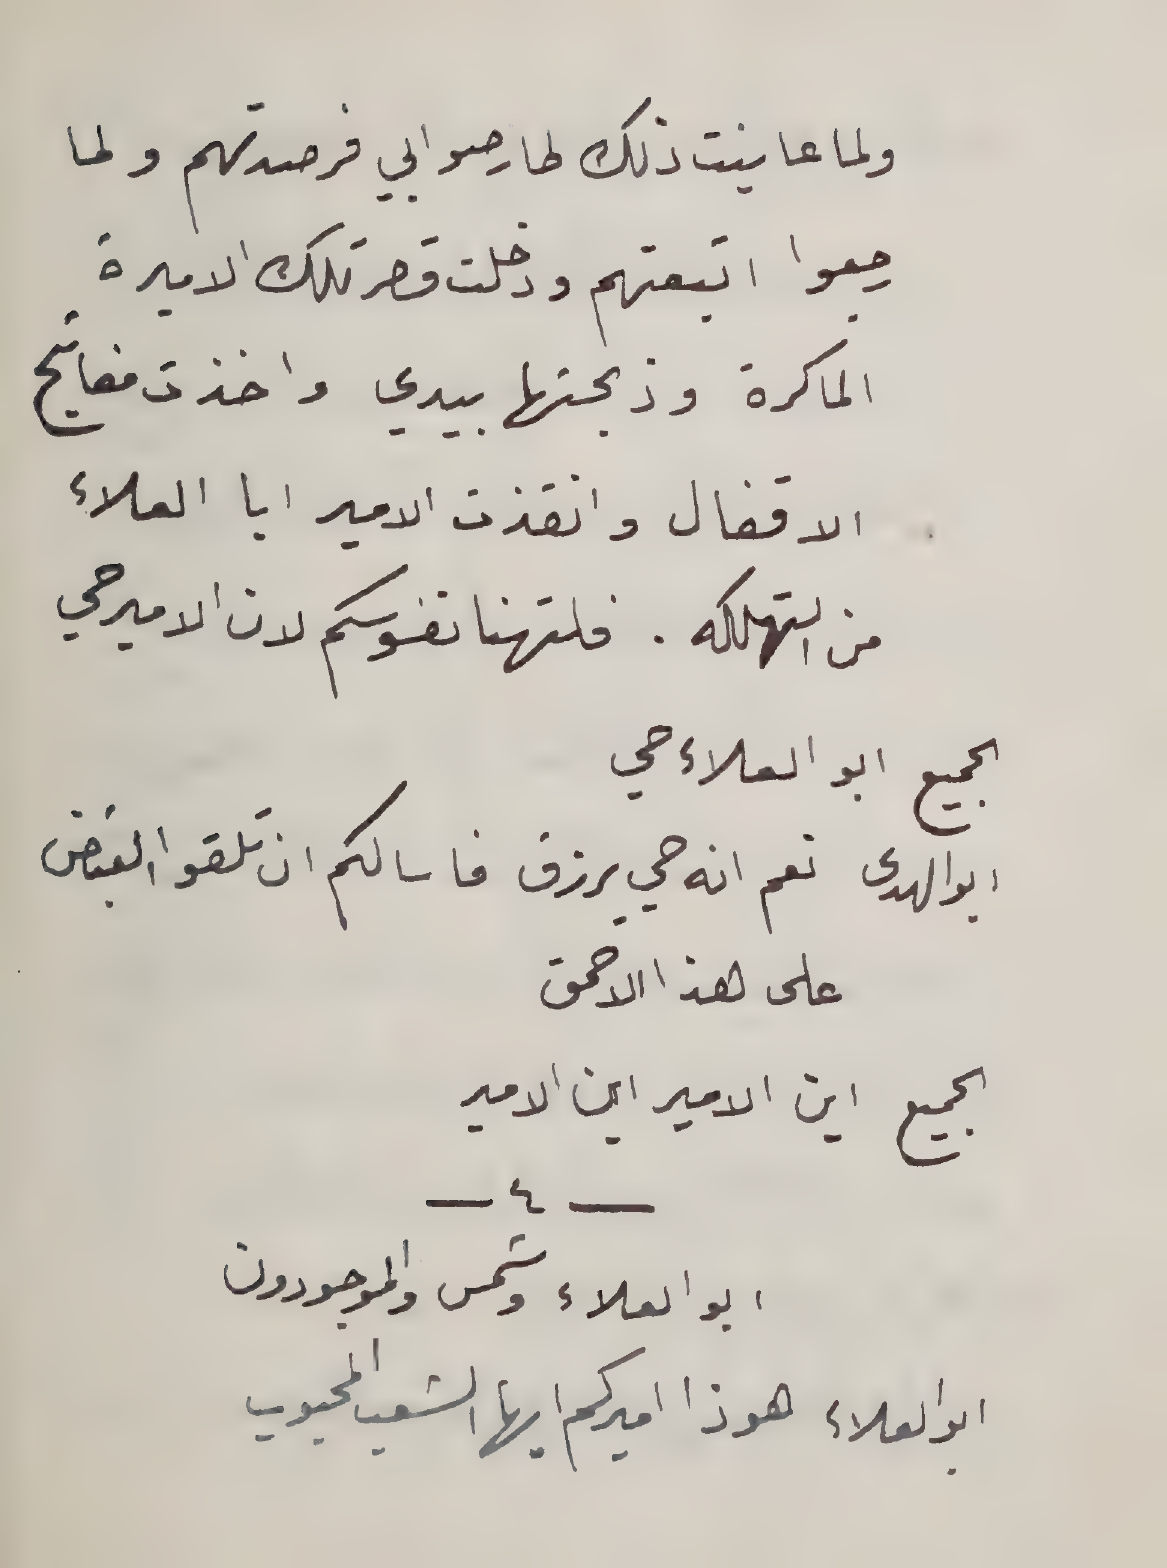 ولما عاينت ذلك طار صوابي فرصدتهم ولما
جعوا اتبعتهم ودخلت قصر تلك الاميرة
الماكرة وذبحتها بيدي واخذت مفاتيح
الاقفال وانقذت الامير ابا العلاء
من التهلكه . فلتهنا نفوسكم لان الامير حي
الجميع ابو العلاء حي
ابو الهدى نعم انه حي يرزق فاسالكم ان تلقوا القبض
على هذا الاحمق
الجميع اين الامير اين الامير
— ٤ —
ابو العلاء وشمس والموجودون
ابو العلاء هوذا اميركم ايها الشعب المحبوب